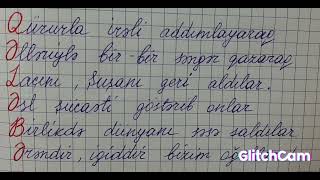 Qürurla irəli addımlayaraq
Əlləriylə bir-bir səngər qazaraq
Laçını, Şuşanı geri aldılar.
Əsl şücaəti göstərib onlar
Birlikdə dünyanı səsə saldılar
Ərəndir, igiddir bizim
GlitchCam